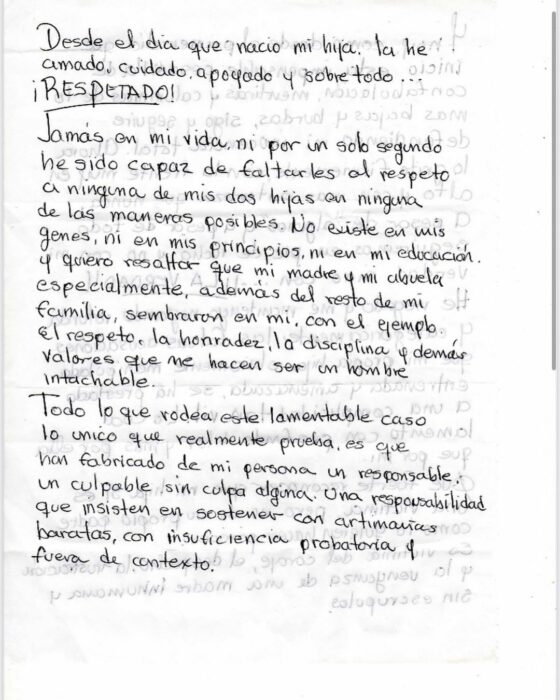 Desde el dia que nacio mi hija, la he
amado, cuidado, apoyado y sobre todo...
¡RESPETADO!
Jamás en mi vida, ni por un solo segundo
he sido capaz de faltarles al respeto
a ninguna de mis dos hijas en ninguna
de las maneras posibles. No existe en mis
genes, ni en mis principios, ni en mi educación.
y quiero resaltar que mi madre y mi abuela
especialmente, además del resto de mi
familia, sembraron en mi, con el ejemplo.
El respeto, la honradez, la disciplina y demás
valores que me hacen ser un hombre
intachable.
Todo lo que rodea este lamentable caso
lo unico que realmente prueba, es que
han fabricado de mi persona un responsable.
un culpable sin culpa alguna. Una responsabilidad
que insisten en sostener con artimañas
baratas, con insuficiencia probatoria y
fuera de contexto.